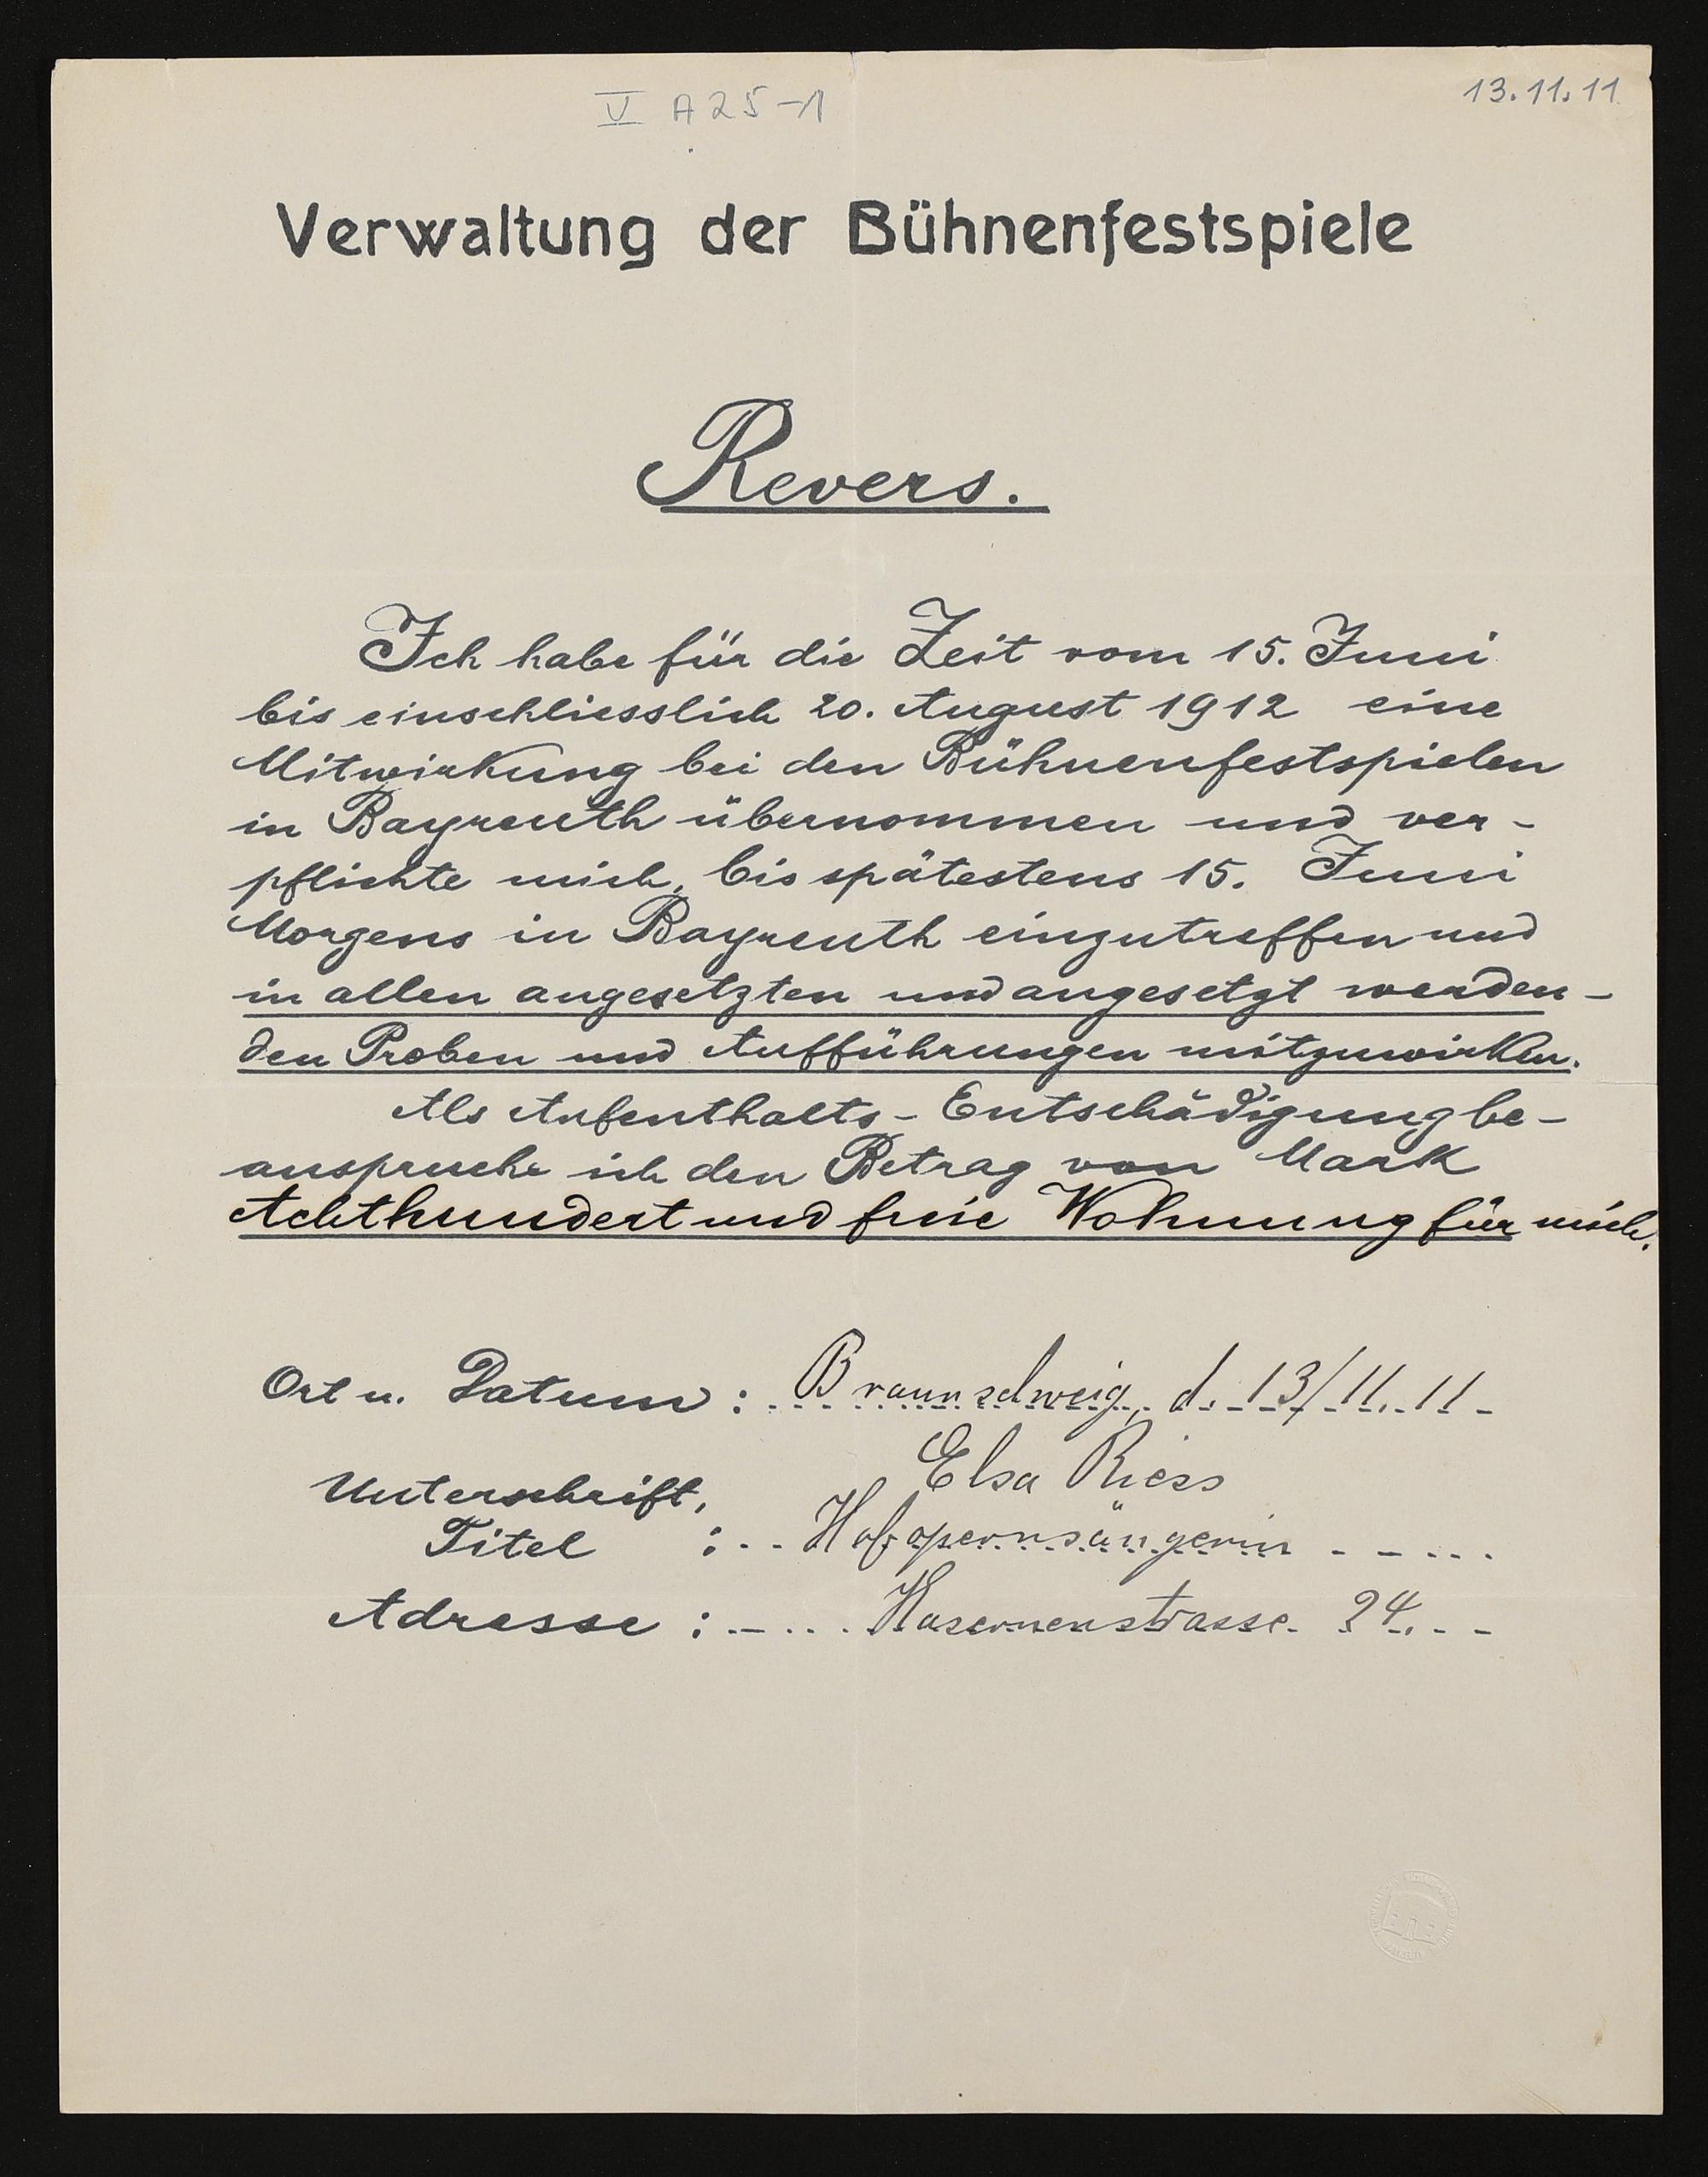 V A 25-1
13.11.11
Verwaltung der Bühnenfestspiele
Revers.
Ich habe für die Zeit vom 15. Juni
bis einschliesslich 20. August 1912 eine
Mitwirkung bei den Bühnenfestspielen
in Bayreuth übernommen und ver-
pflichte mich, bis spätestens 15. Juni
Morgens in Bayreuth einzutreffen und
in allen angesetzten und angesetzt werden-
den Proben und Aufführungen mitzuwirken.
Als Aufenthalts-Entschädigung be-
anspruche ich den Betrag von Mark
Achthundert und freie Wohnung für mich.
Ort u. Datum: Braunschweig, d. 13/11.11
Elsa Riess
Unterschrift,
Titel : Hofopernsängerin
Adresse : Kasernenstrasse 24.